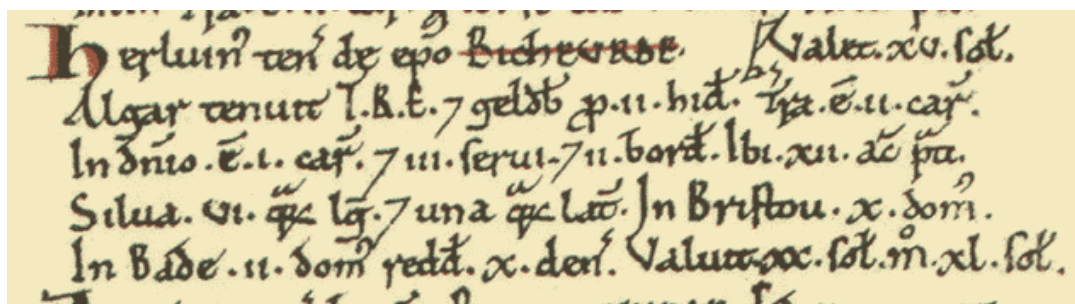 Herluin' ten' de ep̃o BICHEVRDE. Valet. xv. sol'.
Algar tenuit T.R.E. ⁊ geldb̃ p̱. ii. hid'. Tr̃a. ẽ. ii. car̃.
In dñio. ẽ. i. car̃. ⁊ iii. serui. ⁊ ii. bord'. Ibi. xii. ac̃ p̃ti.
Silua. vi. qr̃ lg̃. ⁊ una qr̃ lat̃. In Bristou. x. dom'.
In Bade. ii. dom' redd'. x. den'. Valuit xx. sol'. m̊. xl. sol'.